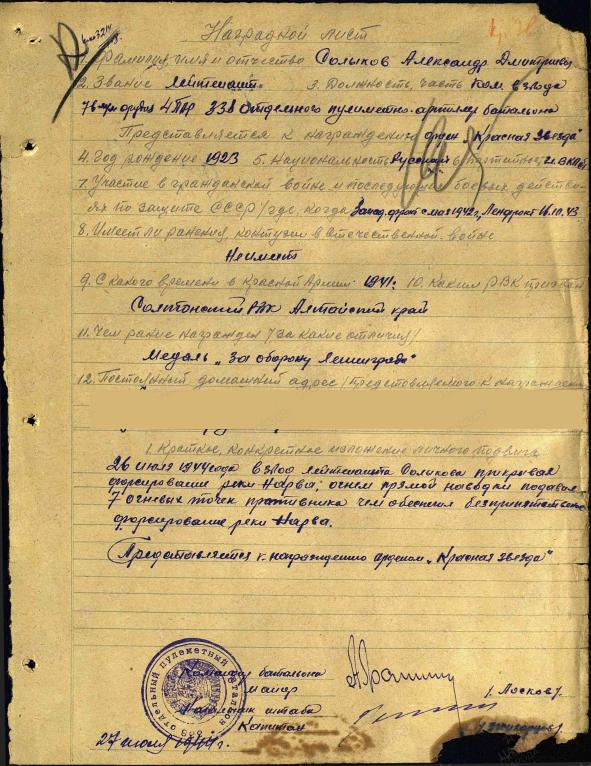 Наградной лист
1. Фамилия, имя и отчество Солыков Александр Дмитриевич
2. Звание лейтенант. 3. Должность, часть ком. взвода
76 м/м орудия 4 ПАР 338 отдельного пулеметно-артилер батальона
Представляется к награждению орден „Красная звезда"
4. Год рождение 1923 5. Национальность русский 6. партийн. чл. ВКП(б)
7. Участие в гражданской войне и последующих боевых действи-
ях по защите СССР /где, когда Запад. фронт с мая 1942 г, Ленфронт
8. Имеет ли ранения, контузии в отечественной войне
Не имеет
9. С какого времени в Красной Армии 1941. 10. Каким РВК призван
Солтонский РВК Алтайский край
11. Чем ранее награжден /за какие отличия/
Медаль „За оборону Ленинграда"
12. Постоянный домашний адрес /представляемого к награждению
1. Краткое, конкретное изложение личного подвига
26 июля 1944 года взвод лейтенанта Соликова прикрывая
форсирование реки Нарва, огнем прямой наводки подавил
7 огневых точек противника чем обеспечил безпрепятственное
форсирование реки Нарва.
Представляется к награждению орденом „Красная звезда"
отдельный пулеметный батальон
Командир батальона
майор /Лосков/
Начальник штаба
Капитан
27 июля 1944 г.